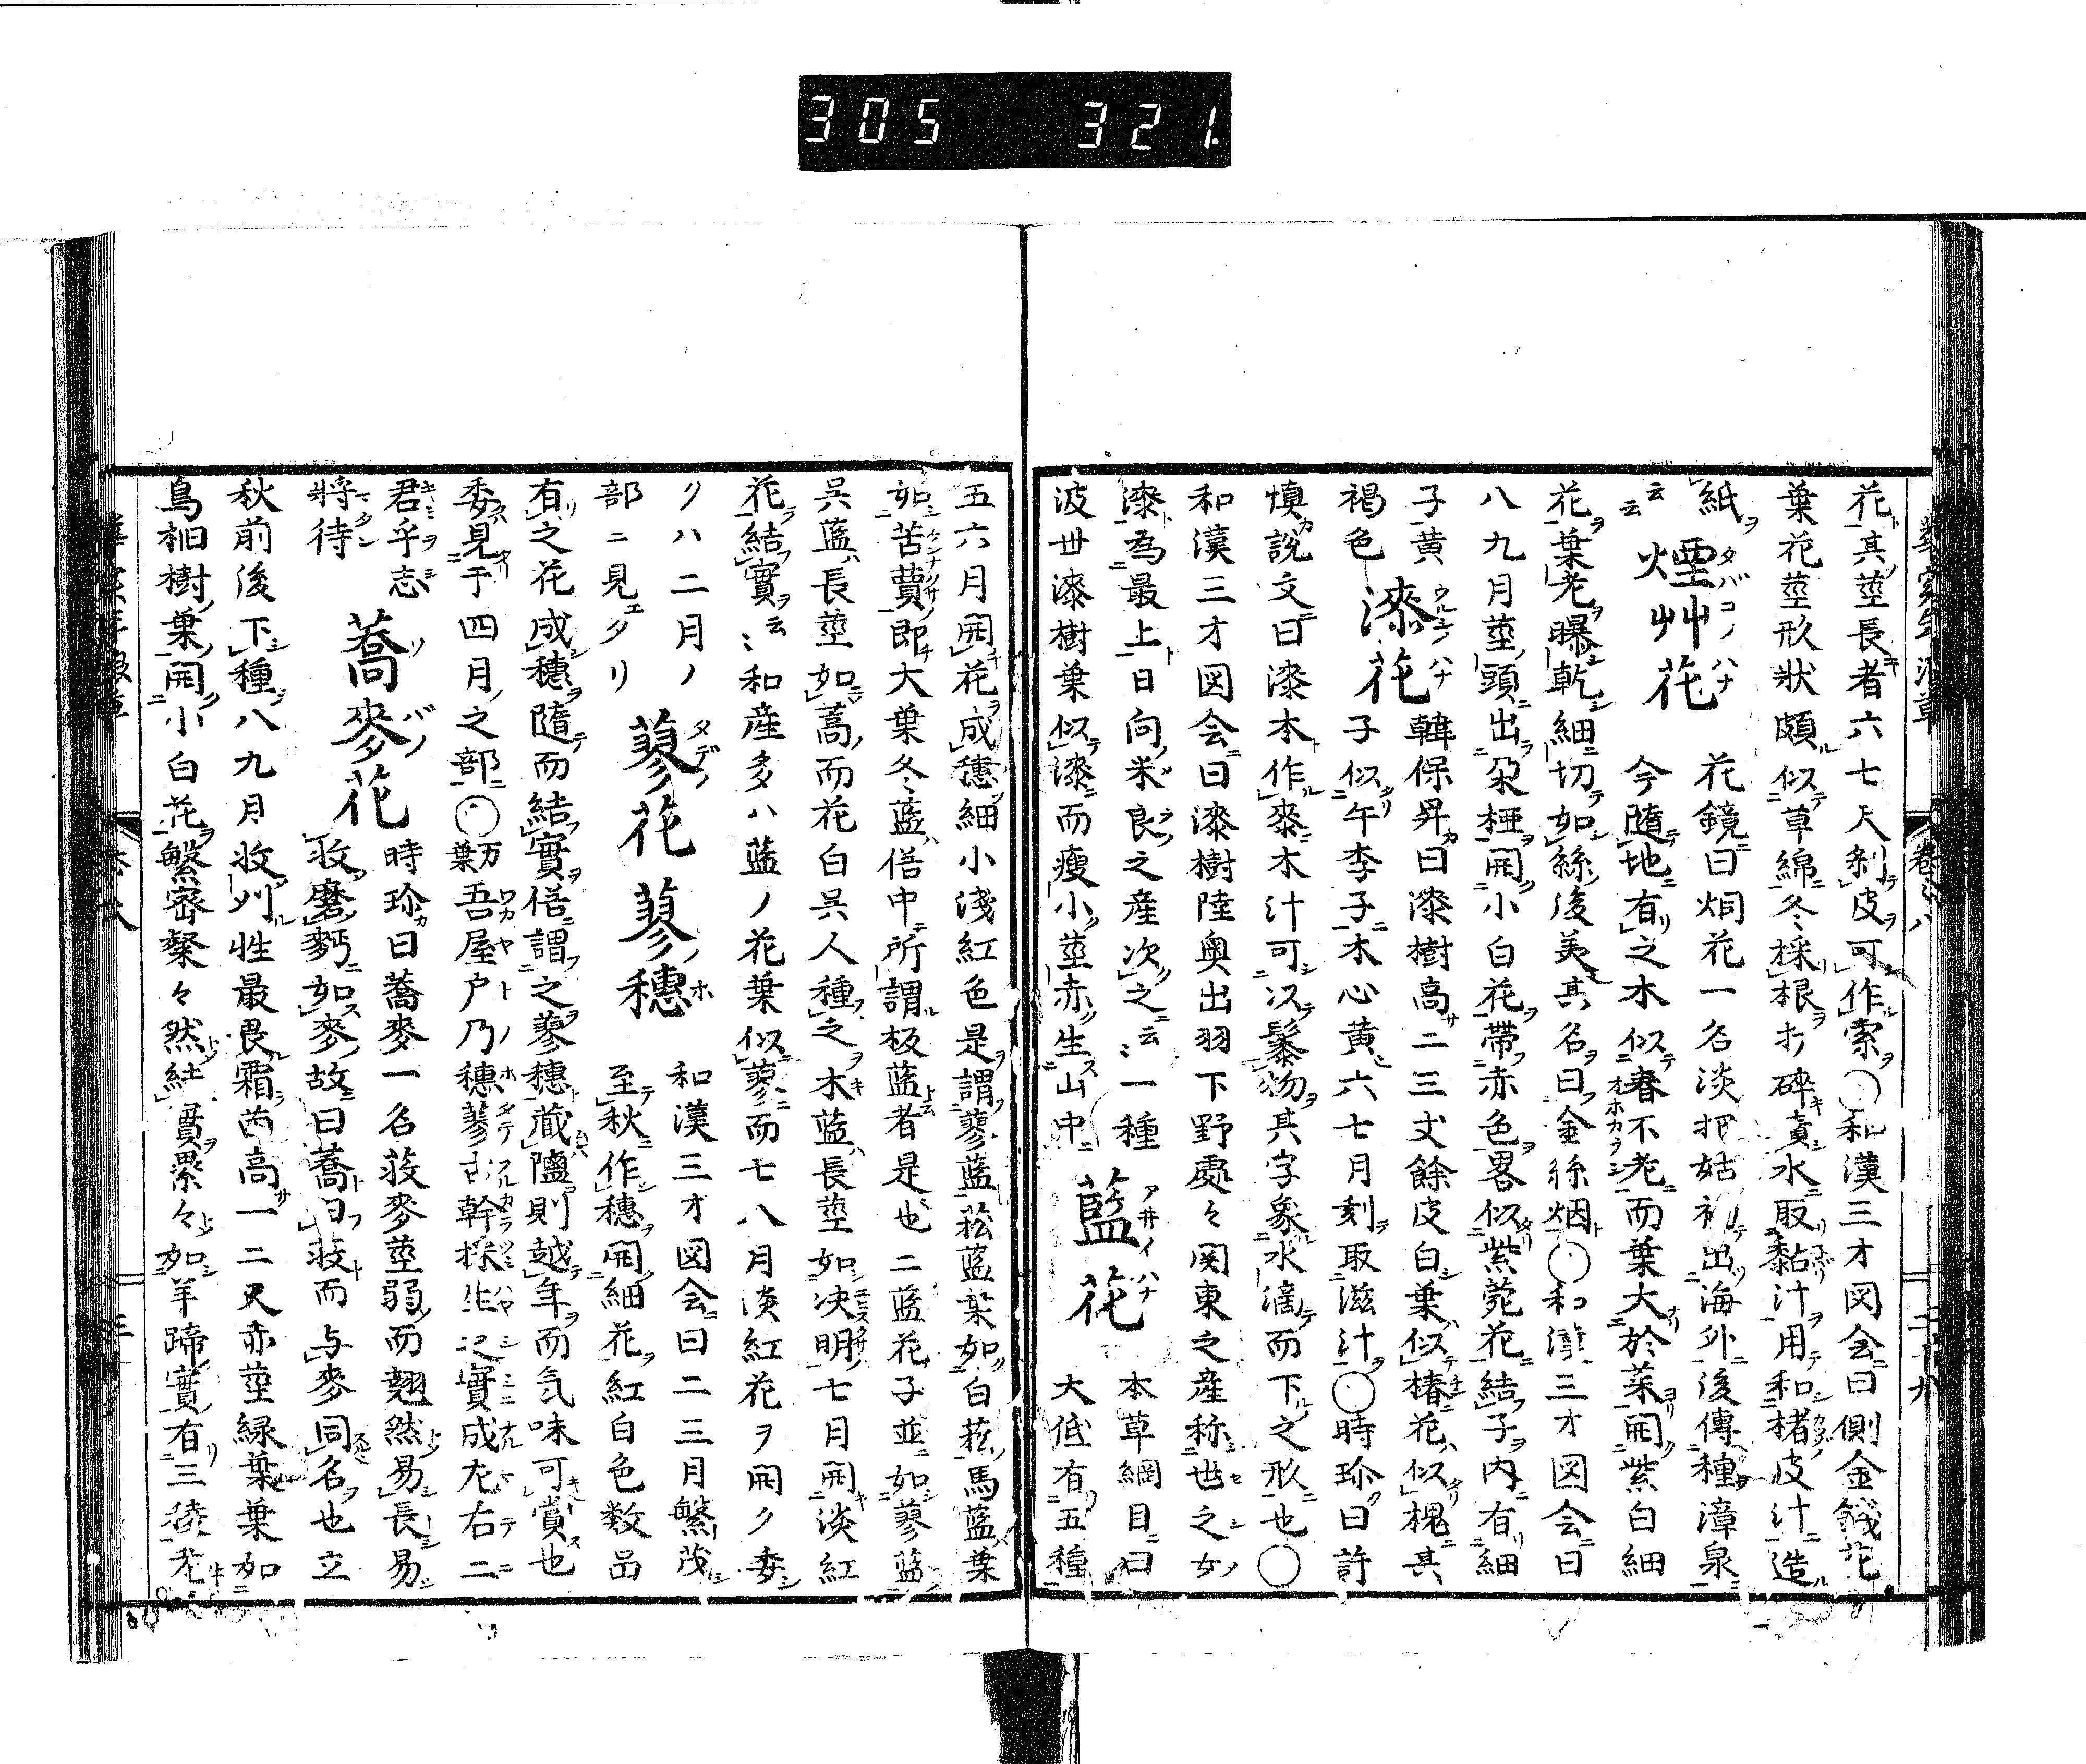 305 321.
花其莖長者六七尺剝皮可作索○和漢三才図会曰側金錢花
葉花莖形狀頗似草綿冬採根打碎漬水取黏汁用和楮皮汁造
紙
云云
煙艸花
花鏡曰烟花一名淡把姑初出海外後傳種漳泉
今隨地有之木似春不老而葉大於菜開紫白細
花葉老曝乾細切如絲後美其名曰金絲烟○和漢三才図会曰
八九月莖頭出朶椏開小白花帶赤色畧似紫菀花結子內有細
子黄
褐色
漆花
韓保昇曰漆樹高二三丈餘皮白葉似椿花似槐其
子似午李子木心黄六七月刻取滋汁○時珍曰許
慎說文曰漆本作桼木汁可以髹物其字象水滴而下之形也○
和漢三才図会曰漆樹陸奥出羽下野處々関東之産称世之女
漆為最上日向米良之産次之云〻一種
波世漆樹葉似漆而瘦小莖赤生山中
藍花
本草綱目曰
大低有五種
五六月開花成穗細小淺紅色是謂蓼藍菘藍葉如白菘馬藍葉
如苦蕒即大葉冬藍俗中所謂板藍者是也二藍花子並如蓼藍
呉藍長莖如蒿而花白呉人種之木藍長莖如决明七月開淡紅
花結實云〻和産多ハ藍ノ花葉似蓼而七八月淡紅花ヲ開ク委
リハ二月ノ
部ニ見エタリ
蓼花 蓼穗
和漢三才図会曰二三月繁茂
至秋作穗開細花紅白色数品
有之花成穗隨而結實俗謂之蓼穗蔵鹽則越年而気味可賞也
委見于四月之部○万葉吾屋戸乃穗蓼古幹採生之實成左右二
君乎志
將待
蕎麥花
時珍曰蕎麥一名荍麥莖弱而翹然易長易
收磨麪如麥故曰蕎曰荍而与麥同名也立
秋前後下種八九月收刈性最畏霜苗高一二尺赤莖緑葉葉如
烏桕樹葉開小白花繁密粲々然結實累々如羊蹄實有三稜老